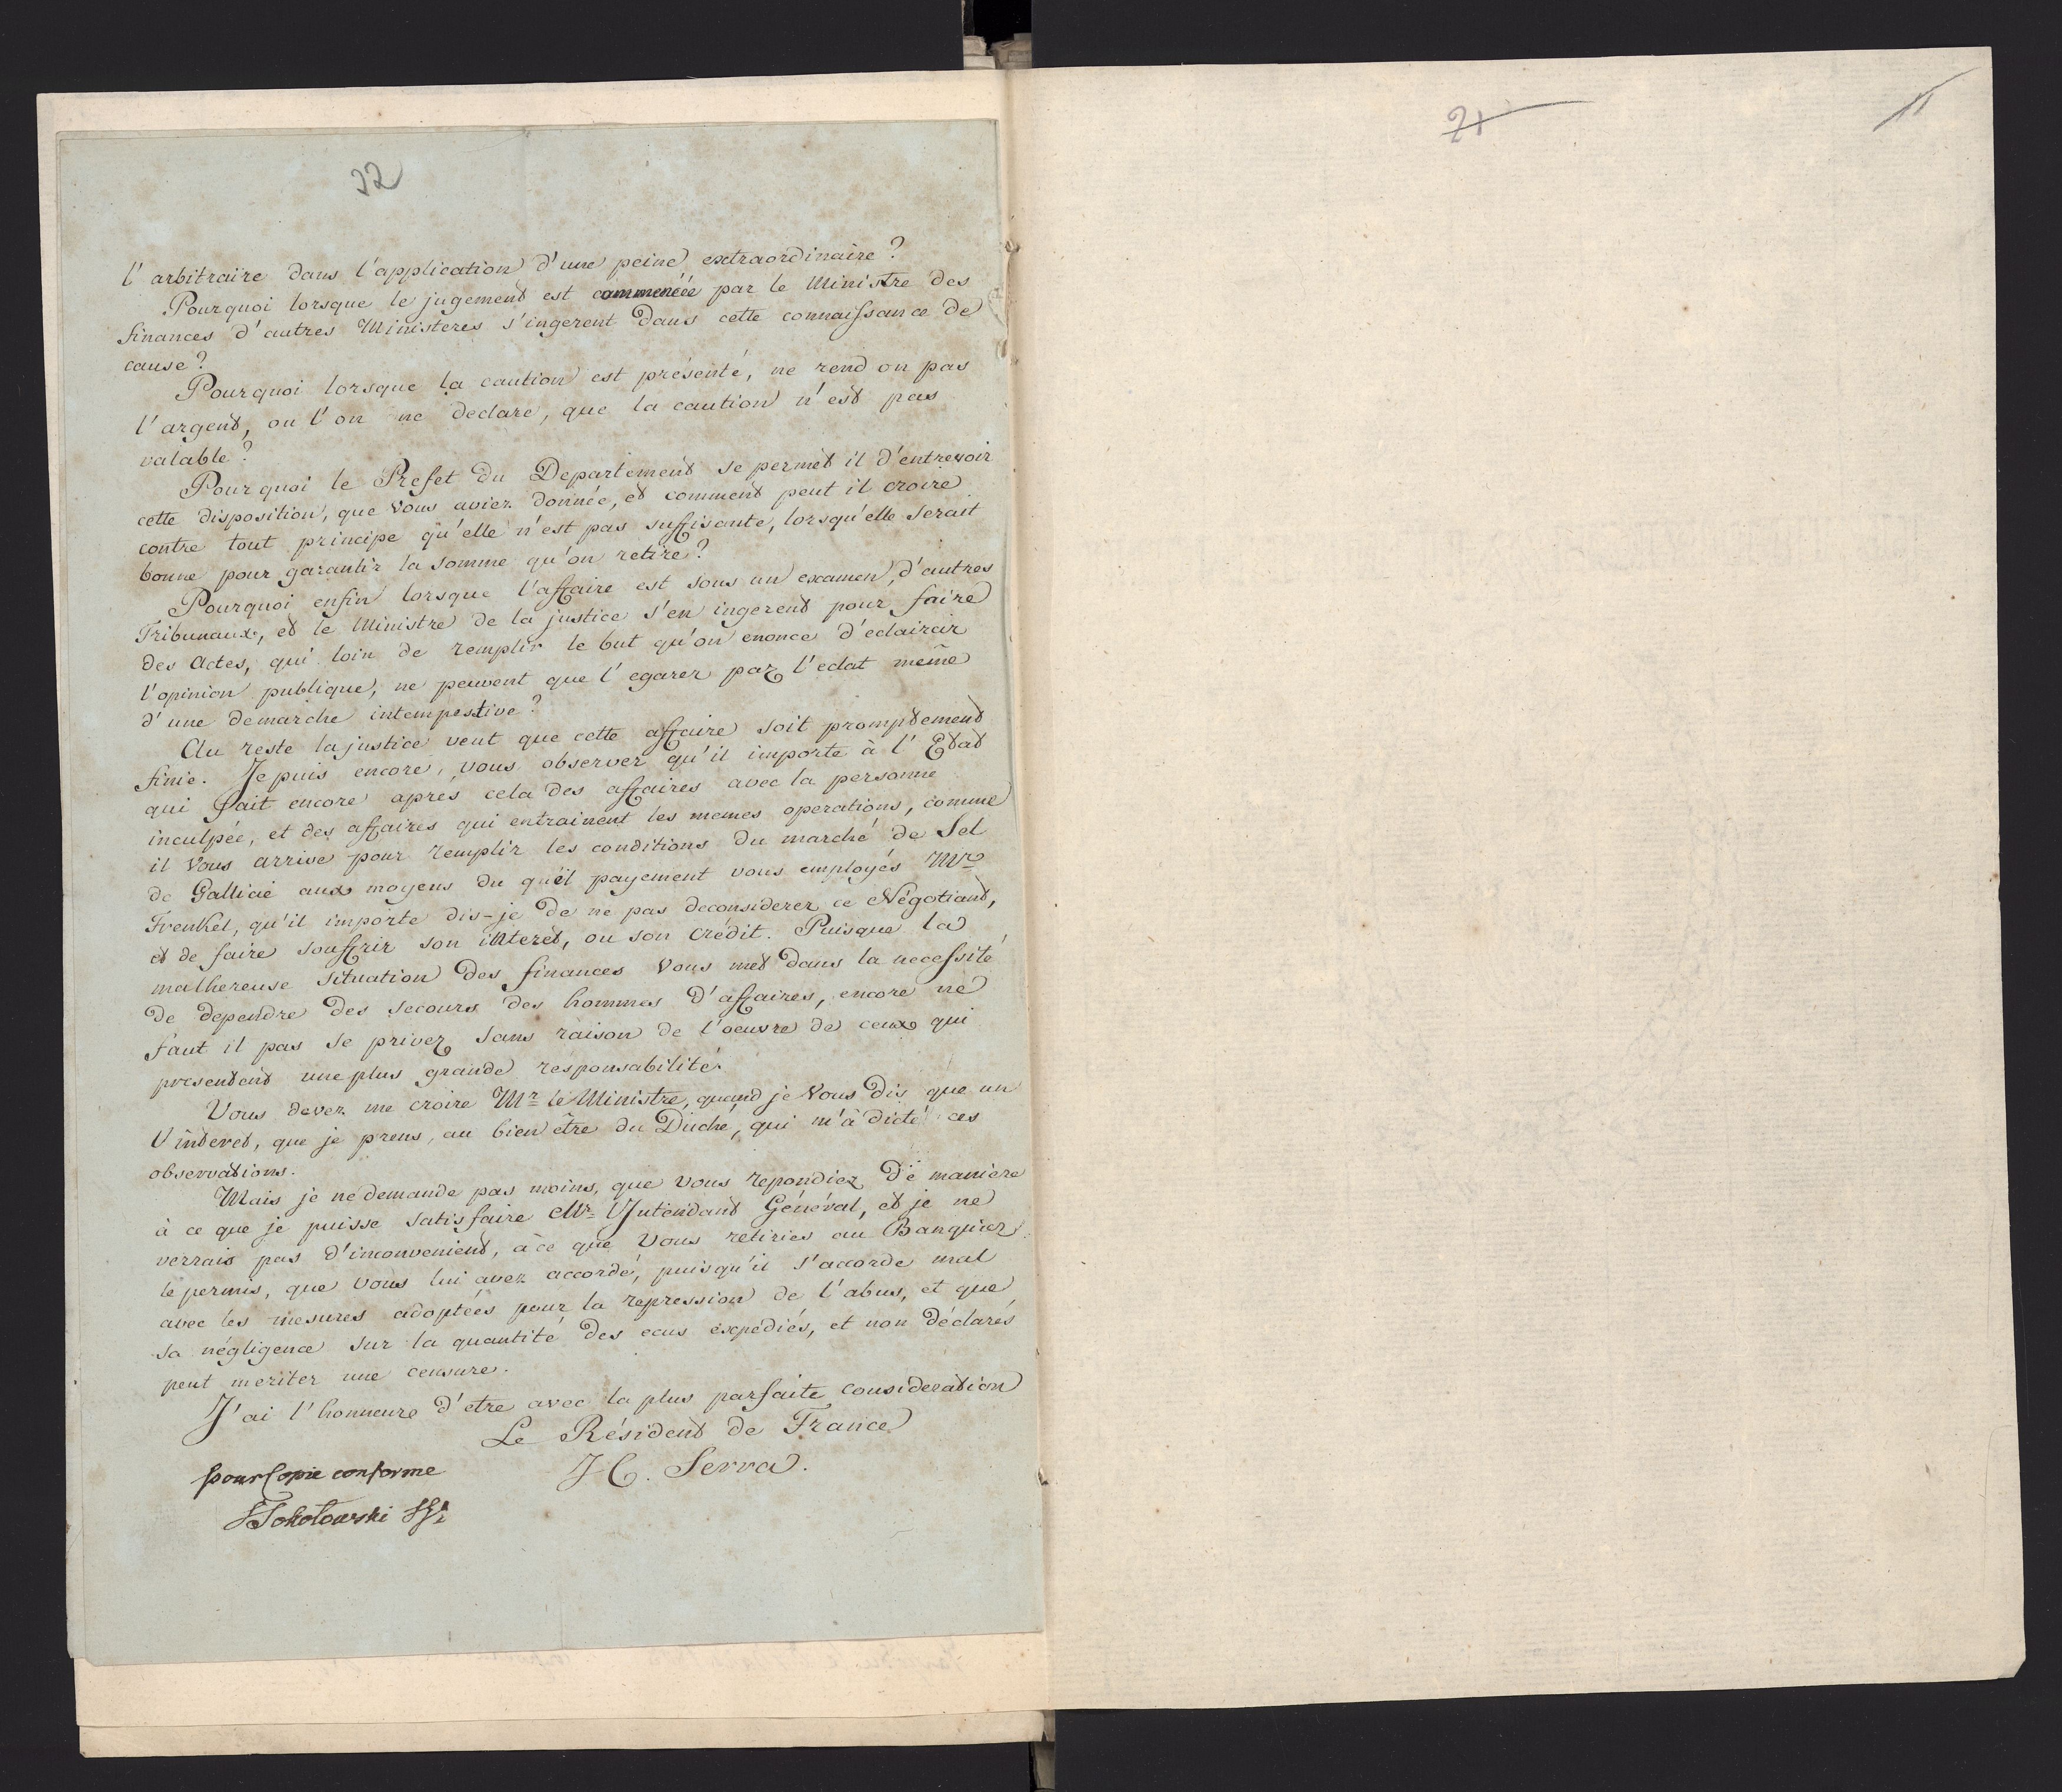 32
l'arbitraire dans l'application d'une peine extraordinaire?
Pourquoi lorsque le jugement est commencée par le Ministre des
finances d'autres Ministeres s'ingerent dans cette connaissance de
cause?
Pourquoi lorsque la caution est présenté, ne rend on pas
l'argent, ou l'on ne declare, que la caution n'est pas
valable?
Pourquoi le Prefet du Departement se permet il d'entrevoir
cette disposition, que Vous aviez donnée, et comment peut il croire
contre tout principe qu'elle n'est pas suffisante, lorsqu'elle serait
bonne pour garantir la somme qu'on retire?
Pourquoi enfin lorsque l'affaire est sous un examen, d'autres
Tribunaux, et le Ministre de la justice s'en ingerent pour faire
des Actes, qui loin de remplir le but qu'on enonce d'eclaircir
l'opinion publique, ne peuvent que l'egarer par l'eclat même
d'une demarche intempestive?
Au reste la justice veut que cette affaire soit promptement
finie. Je puis encore, vous observer qu'il importe à l'Etat
qui fait encore aprés cela des affaires avec la personne
inculpée, et des affaires qui entrainent les memes operations, comme
il Vous arrive pour remplir les conditions du marché de Sel
de Gallicie aux moyens du quél payement vous employés Mr
Frenkel, qu'il importe dis-je de ne pas deconsiderer ce Négotiant,
et de faire souffrir son interet, ou son crédit. Puisque la
malhereuse situation des finances Vous met dans la necessité
de dependre des secours des hommes d'affaires, encore ne
faut il pas se priver sans raison de l'oeuvre de ceux qui
presentent une plus grande responsabilité.
Vous devez me croire Mr le Ministre, quand je Vous dis que un
l'interet, que je prens, au bien être du Duché, qui m'à dicté ces
observations.
Mais je ne demande pas moins, que vous repondiez de maniere
à ce que je puisse satisfaire Mr l'Intendant Général, et je ne
verrais pas d'inconvenient, à ce que Vous retiries au Banquier
le permis, que vous lui avez accordé, puisqu'il s'accorde mal
avec les mesures adoptées pour la repression de l'abus, et que
sa négligence sur la quantité des ecus expediés, et non déclarés
peut meriter une censure.
J'ai l'honneure d'etre avec la plus parfaite consideration
Le Résident de France
J C. Serra.
pour Copie conforme
Sokołowski
21
11